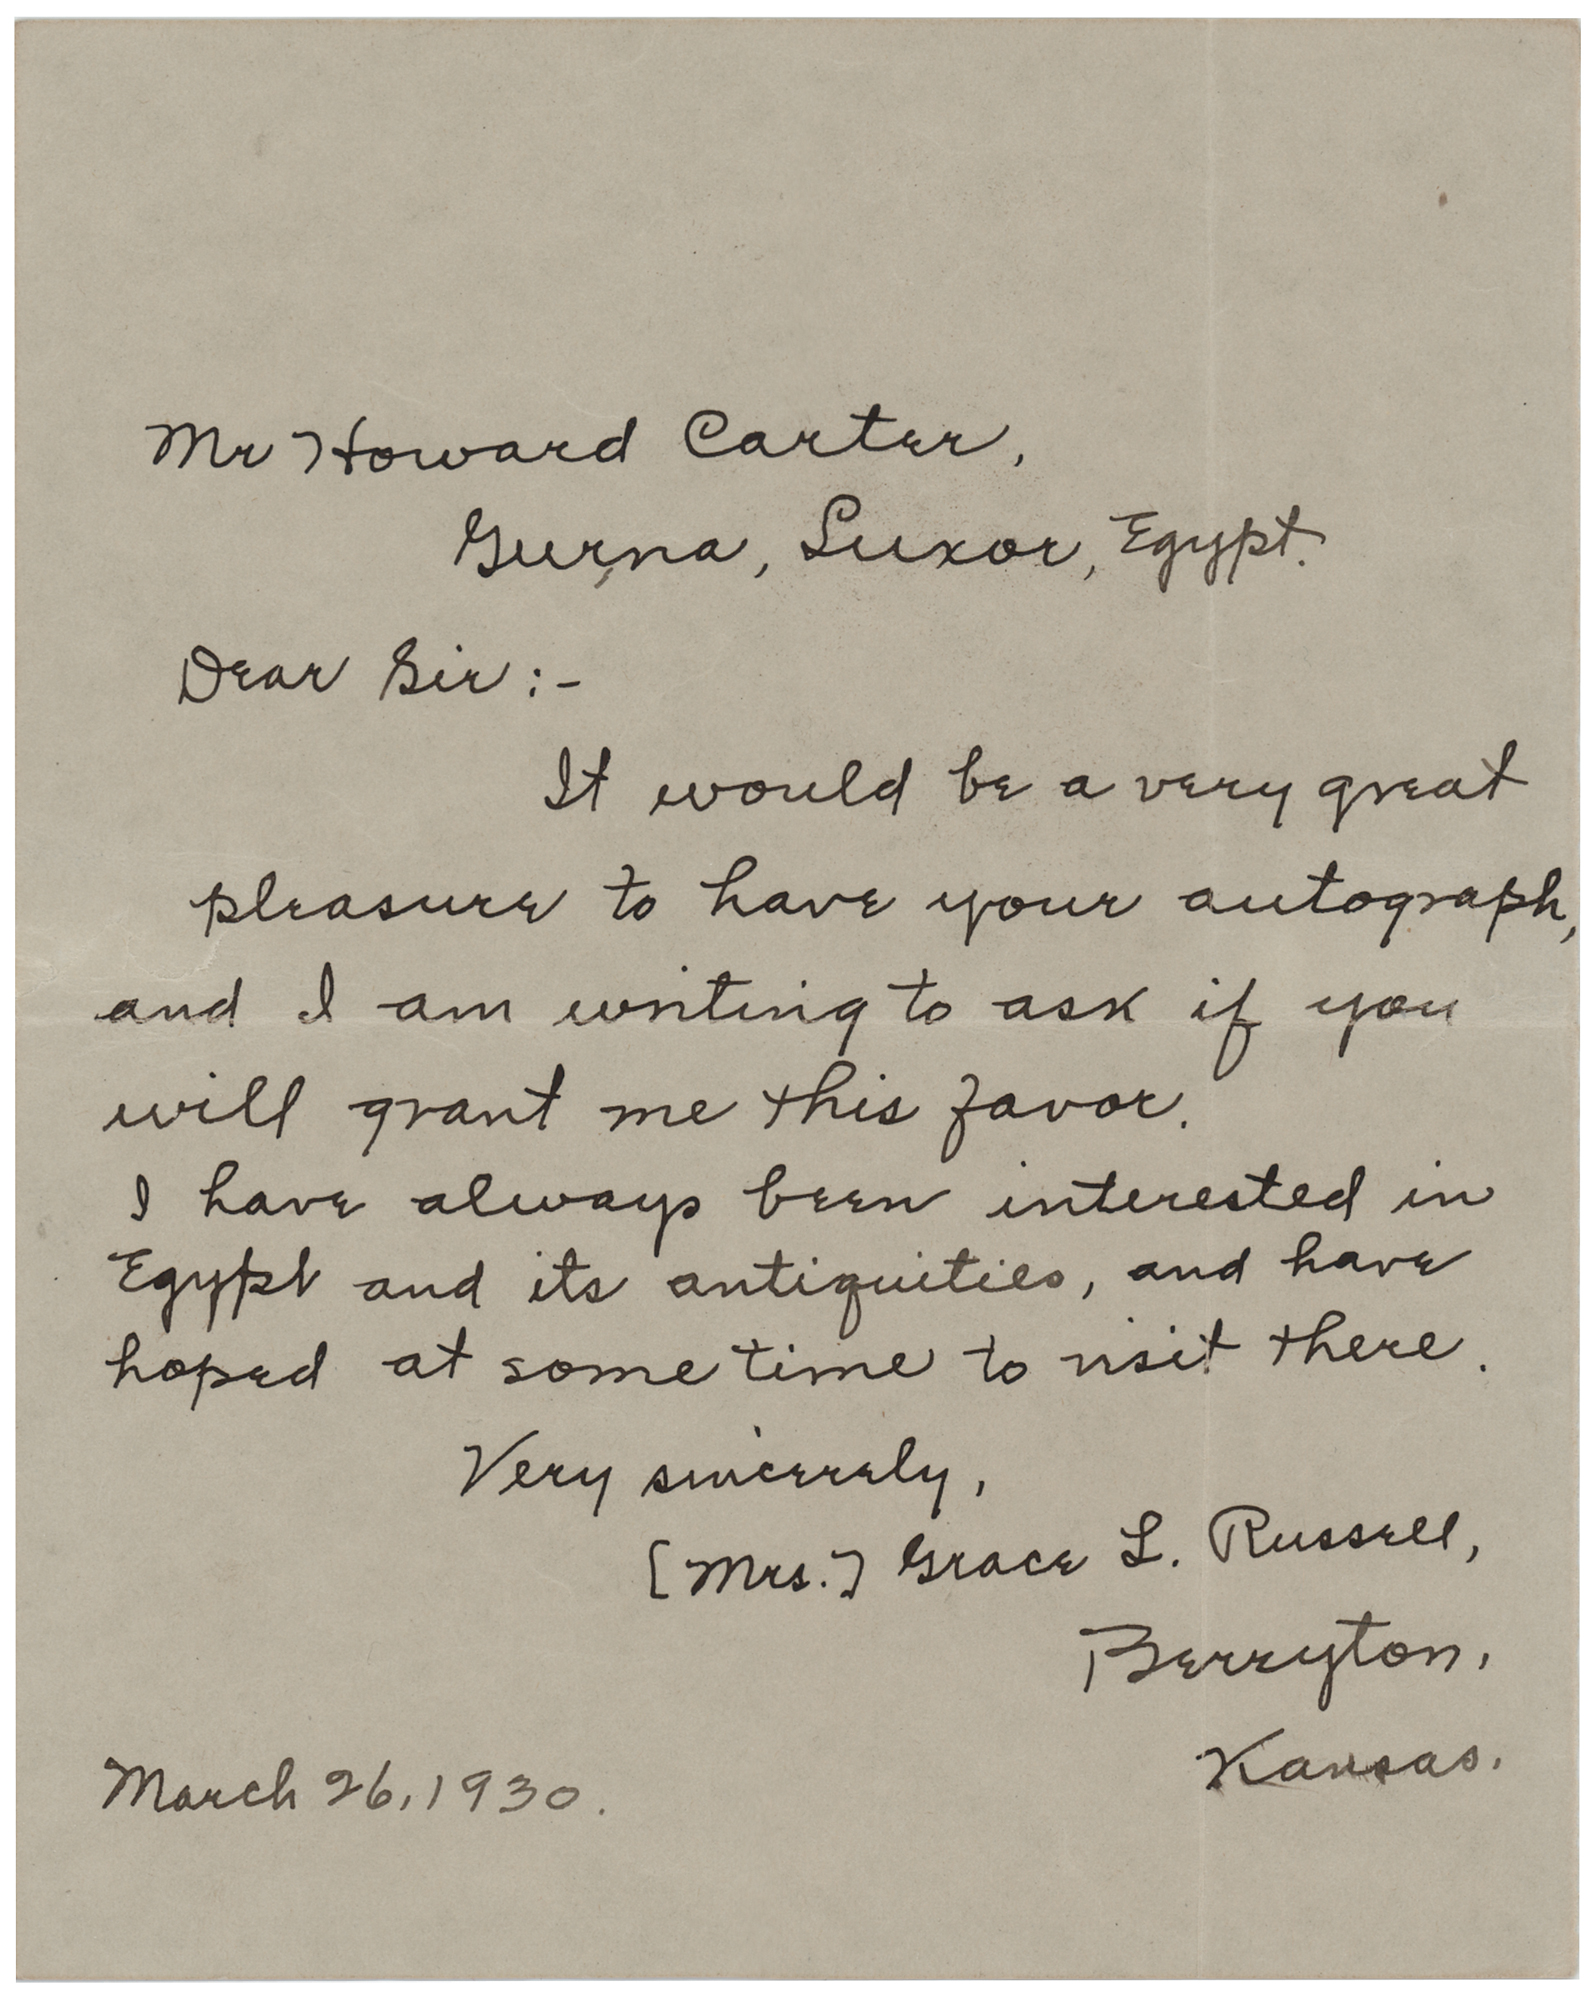 Mr Howard Carter,
Gurna, Luxor, Egypt.
Dear Sir :-
It would be a very great
pleasure to have your autograph,
and I am writing to ask if you
will grant me this favor.
I have always been interested in
Egypt and its antiquities, and have
hoped at some time to visit there.
Very sincerely,
[Mrs.] Grace L. Russell,
Berryton,
Kansas.
March 26, 1930.